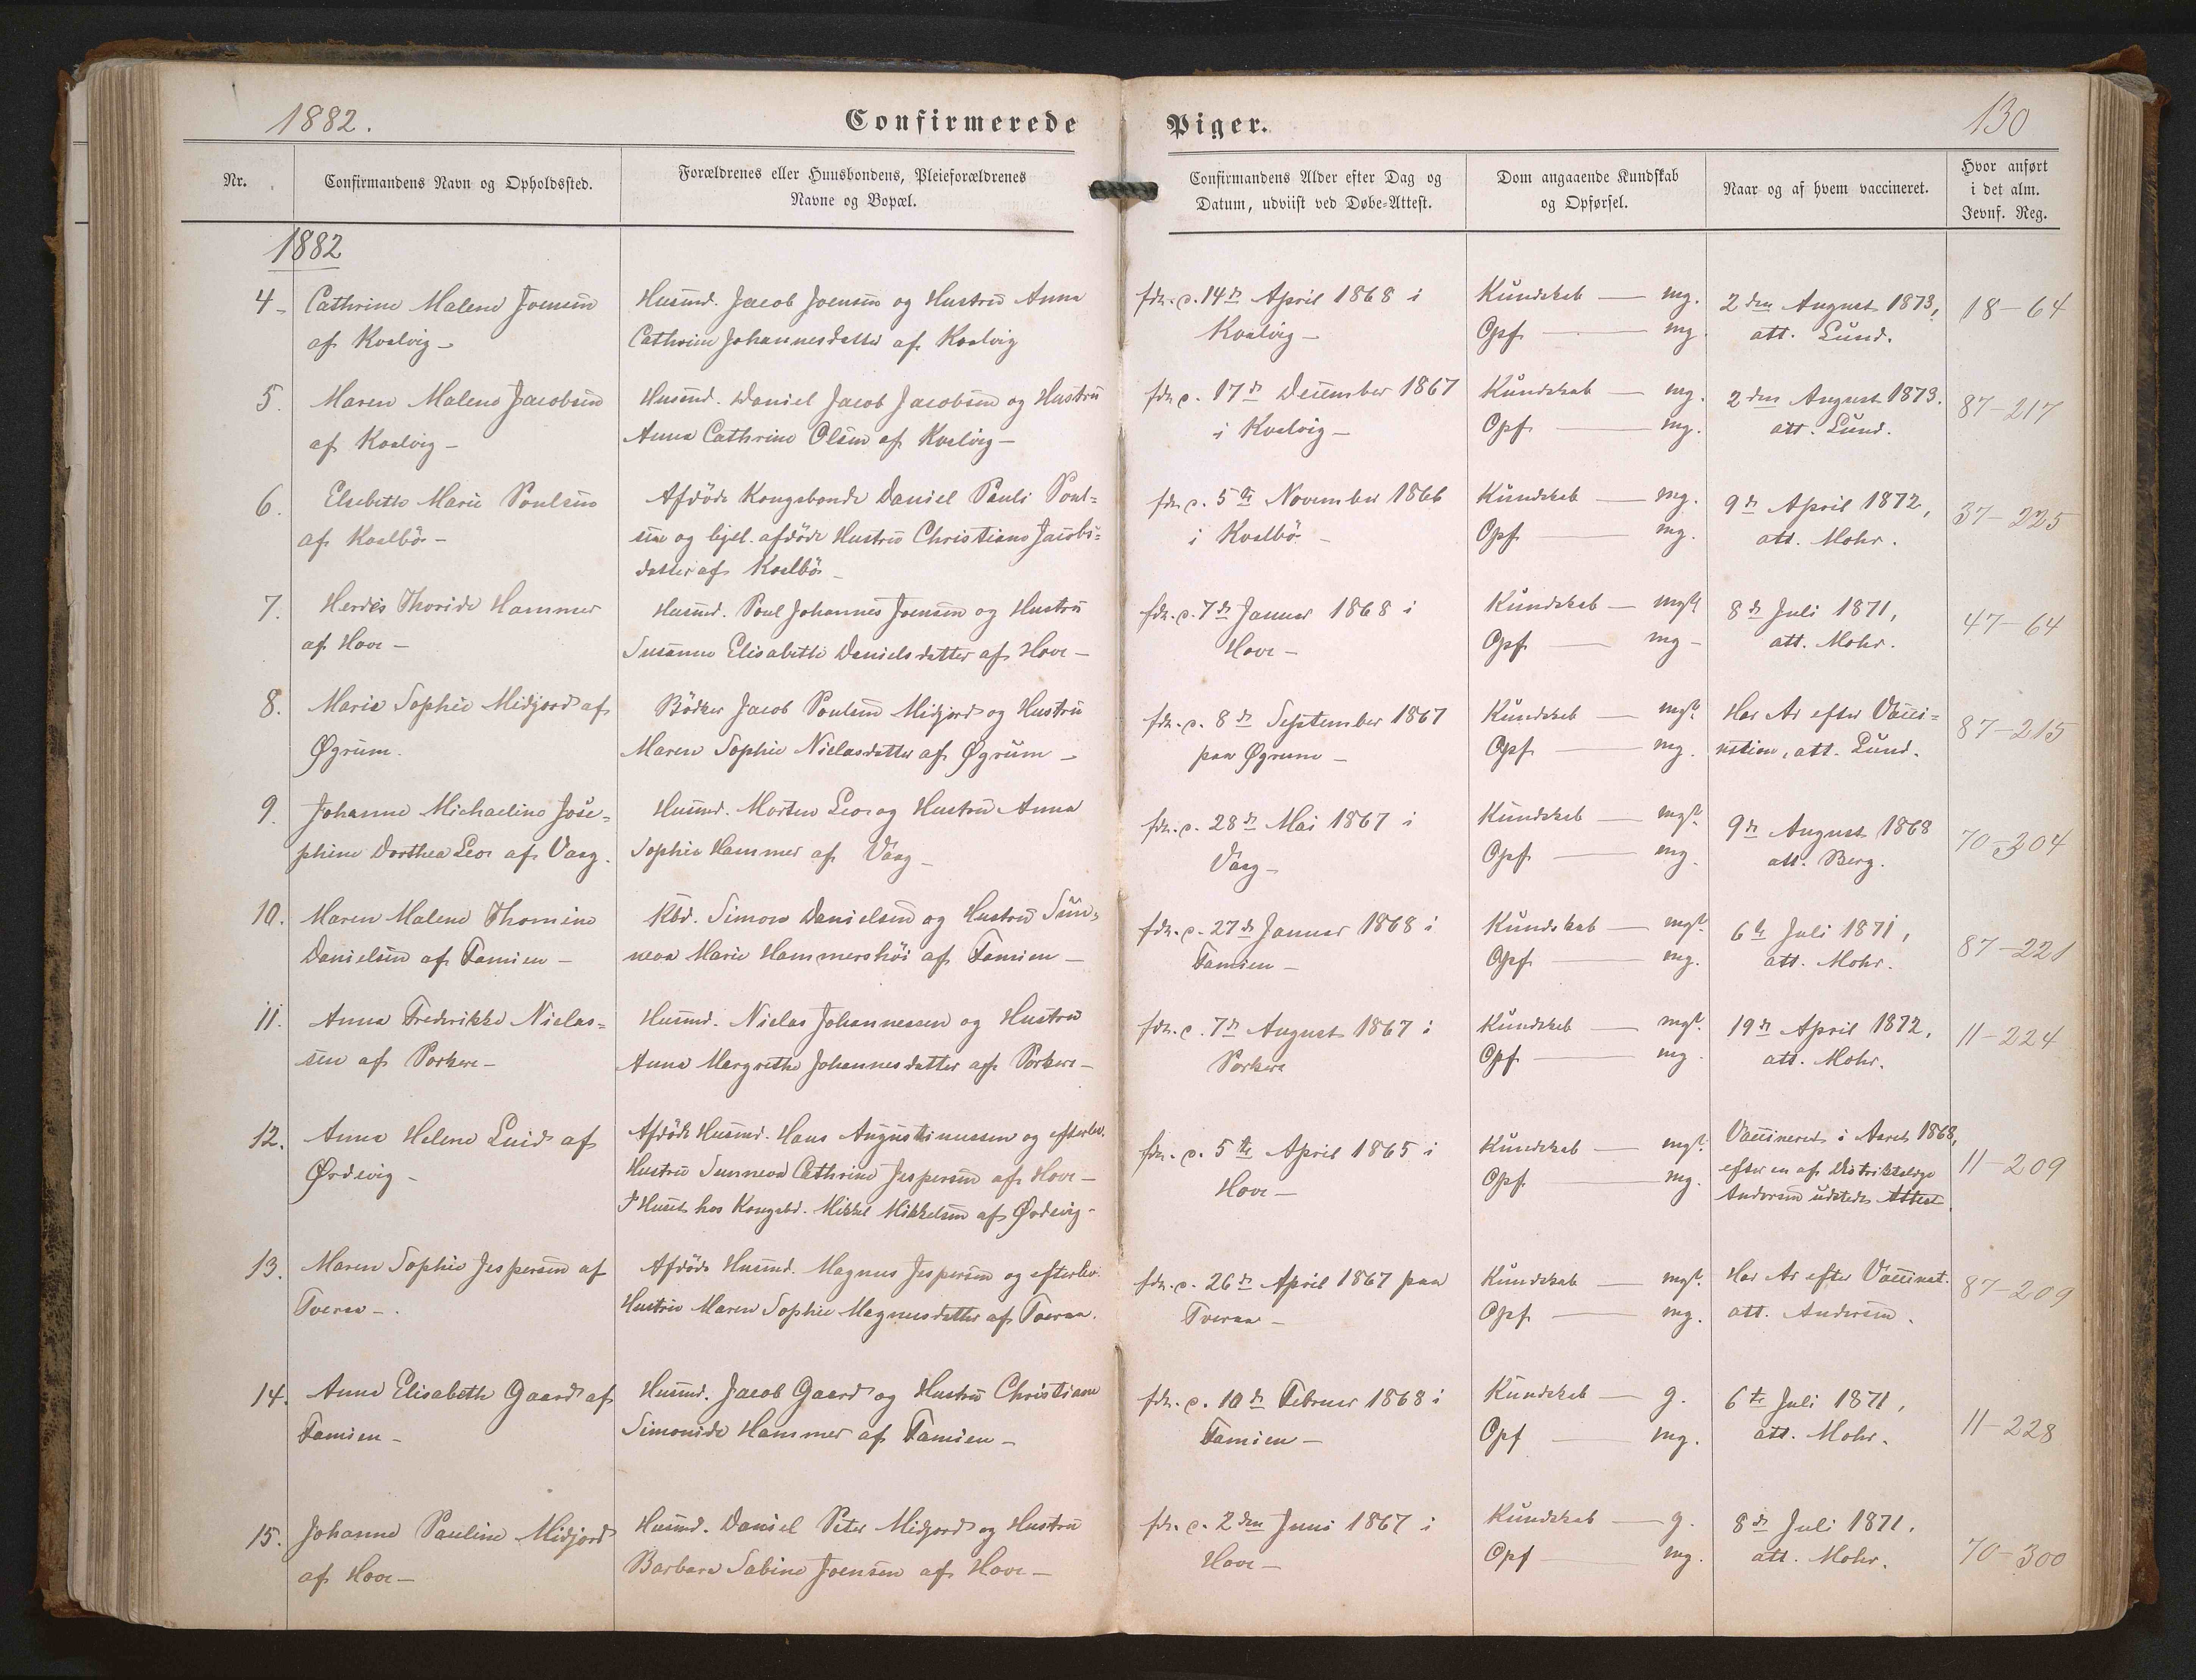 1882.
Confirmerede Piger.
130
Nr.
Confirmandens Navn og Opholdssted.
Forældrenes eller Huusbondens, Pleieforældrenes
Navne og Bopæl.
Confirmandens Alder efter Dag og
Datum, udviist ved Døbe-Attest.
Dom angaaende Kundskab
og Opførsel.
Naar og af hvem vaccineret.
Hvor anført
i det alm.
Jevnf. Reg.
1882
4
Cathrine Malene Joensen
af Kvalvig
Husmd. Jacob Joensen og Hustru Anna
Cathrine Johannesdatter af Kvalvig
14de April 1868 i
Kvalvig
Kundskab — mg.
Opf. — mg.
2den August 1873,
att. Lund.
18-64
5.
Maren Malene Jacobsen
af Kvalvig
Husmd. Daniel Jacob Jacobsen og Hustru
Anna Cathrine Olsen af Kvalvig
17de December 1867
i Kvalvig
Kundskab — mg.
Opf. — mg.
2den August 1873.
att. Lund.
87-217
6.
Elsebeth Marie Poulsen
af Kvalbö
Afdöde Kongsbonde Daniel Pauli Poul=
sen og ligel. afdöde Hustru Christiane Jacobs=
datter af Kvalbö
5te November 1866
i Kvalbö
Kundskab — mg.
Opf. — mg.
9de April 1872,
att. Mohr.
37-225
7.
Herdis Thoride Hammer
af Hove
Husmd. Poul Johannes Joensen og Hustru
Susanne Elisabeth Danielsdatter af Hove
7de Januar 1868 i
Hove
Kundskab — mgt.
Opf. — mg
8de Juli 1871,
att. Mohr.
47-64
8.
Maria Sophie Midjord af
Øgrum.
Bödker Jacob Poulsen Midjord og Hustru
Maren Sophie Nielasdatter af Øgrum
8de September 1867
paa Øgrum
Kundskab — mgt.
Opf. — mg.
Har Ar efter Vacci=
nation, att. Lund.
87-215
9.
Johanne Michaeline Jose=
phine Dorthea Leo af Vaag.
Husmd. Morten Leo og Hustru Anna
Sophie Hammer af Vaag
28de Mai 1867 i
Vaag
Kundskab — mgt.
Opf. — mg.
9de August 1868
att. Berg.
70-304
10.
Maren Malene Thomine
Danielsen af Famien
Kbd. Simon Danielsen og Hustru Sün=
neva Marie Hammershöi af Famien
27de Januar 1868 i
Famien
Kundskab — mgt.
Opf. — mg.
6te Juli 1871,
att. Mohr.
87-221
11.
Anna Frederikke Nielas=
sen af Porkere
Husmd. Nielas Johannessen og Hustru
Anna Margrethe Johannesdatter af Porkere
7de August 1867 i
Porkere
Kundskab — mgt.
Opf. — mg.
19de April 1872.
att. Mohr.
11-224
12.
Anna Helene Luid af
Ørdevig
Afdöde Husmd. Hans Augustinussen og efterlev.
Hustru Sunneva Cathrine Jespersen af Hove
I Huset hos Kongsbd. Mikkel Mikkelsen af Ørdevig
5te April 1865 i
Hove
Kundskab — mgt.
Opf. — mg.
Vaccineret i Aaret 1868,
efter en af Distriktslæge
Andersen udstedt Attest.
11-209
13.
Maren Sophie Jespersen af
Tveraa
Afdöde Husmd. Magnus Jespersen og efterlev.
Hustru Maren Sophie Magnusdatter af Tveraa.
26de April 1867 paa
Tveraa
Kundskab — mgt.
Opf. — mg.
Har Ar efter Vaccinat.
att. Andersen.
87-209
14.
Anna Elisabeth Gaard af
Famien
Husmd. Jacob Gaard og Hustru Christiane
Simonide Hammer af Famien
10de Februar 1868 i
Famien
Kundskab — g.
Opf — mg.
6te Juli 1871,
att. Mohr.
11-228
15.
Johanne Pauline Midjord
af Hove
Husmd. Daniel Peter Midjord og Hustru
Barbara Sabine Joensen af Hove
2den Juni 1867 i
Hove
Kundskab — g.
Opf — mg.
8de Juli 1871.
att. Mohr.
70-300